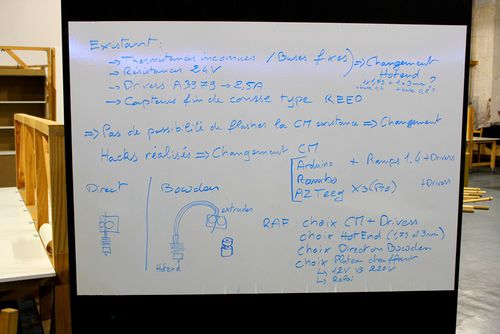 Existant :
→ Thermistances inconnues / Buses fixes ⇒ Changement
HotEnd
→ Résistances 24V
1x1,75 + 1x3mm ?
→ Drivers A3979 → 2,5A
→ Capteurs fin de course type REED
⇒ Pas de possibilité de flasher la CM existance ⇒ Changement
Hacks réalisés ⇒ Changement CM
Arduino + Ramps 1.4 + Drivers
Rambo
AZTeeg X3 (Pro) + Drivers
Direct
Bowden
extruder
HotEnd
RAF : choix CM + Drivers
choix HotEnd (1,75 et 3mm)
choix Direct or Bowden
choix Plateau chauffant
↳ 12V vs 220V